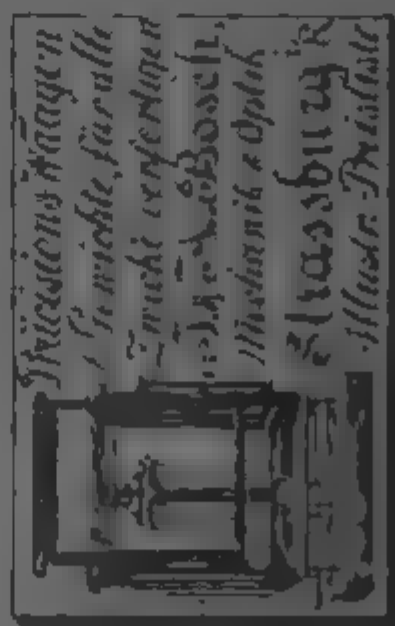 Präcisions-Waagen
Gewichte für alle
Zwecke verfertigen
J. & A. Bosch,
Mechanik & Optik
Strassburg i/E
Illustr. Preisliste